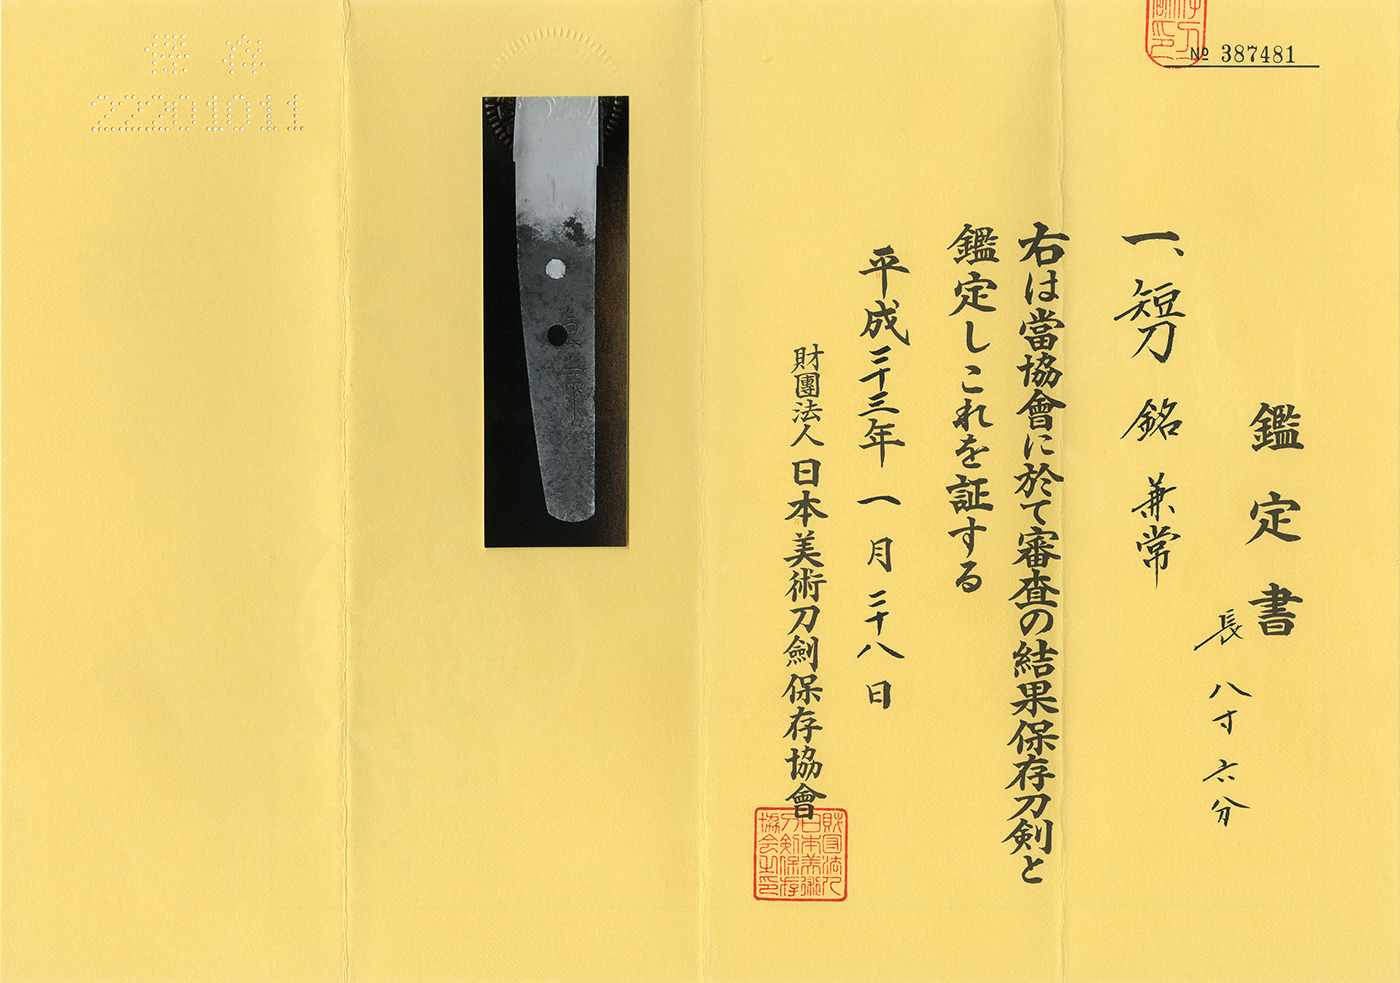 № 387481
鑑定書
一、短刀 銘 兼常
長 八寸六分
右は當協會に於て審査の結果保存刀剣と
鑑定しこれを証する
平成二十三年一月二十八日
財團法人日本美術刀劍保存協會
財団法人
日本美術
刀剣保存
協会之印
兼常
保存
22201011